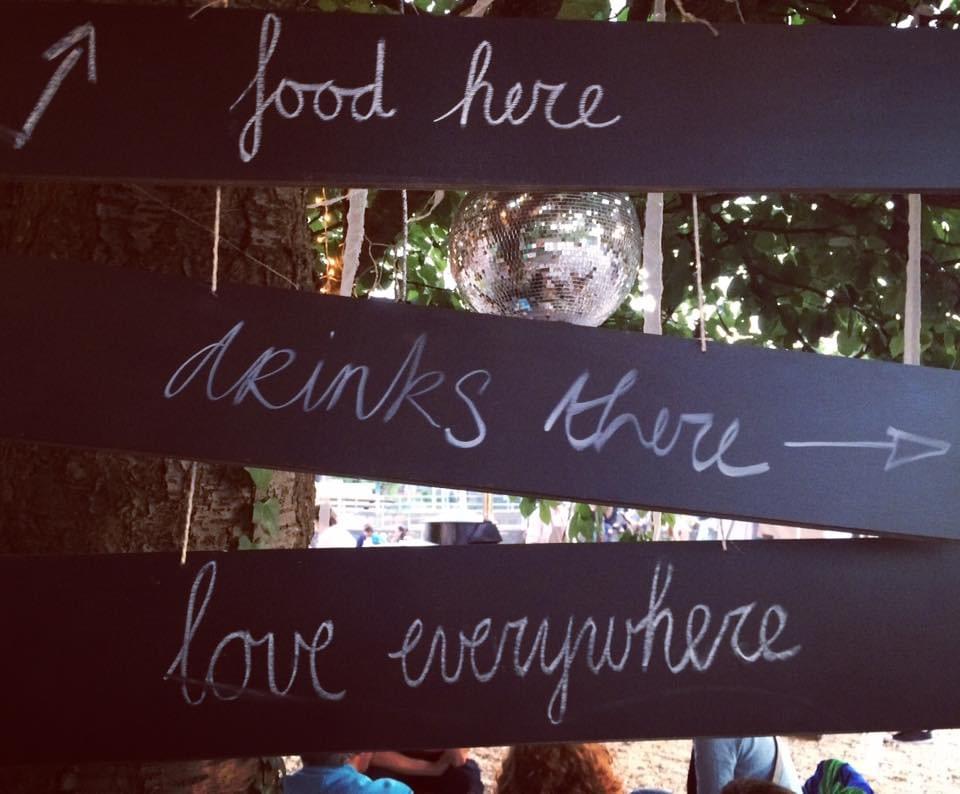 food here
drinks there
love everywhere